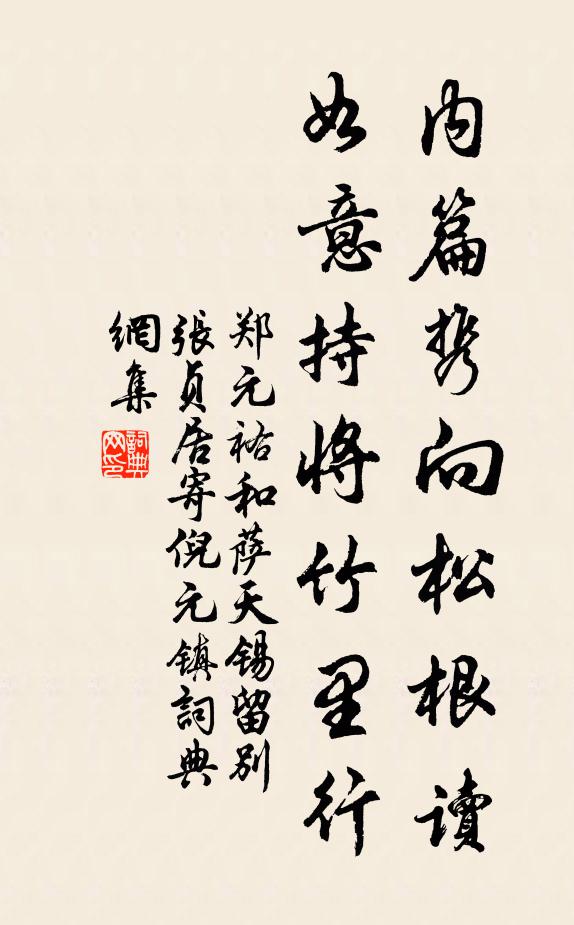 内篇携向松根讀
如意持将竹里行
郑元祐和萨天锡留别
張貞居寄倪元镇詞典
網集
詞典
网印